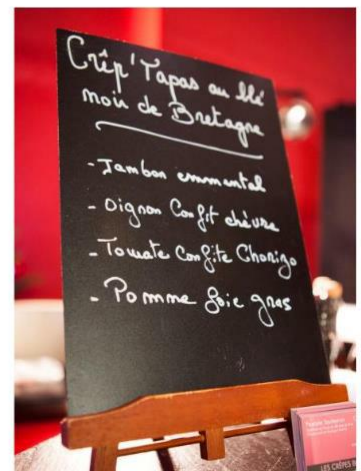 Crêp'Tapas au blé
noir de Bretagne
- Jambon emmental
- Oignon Confit chèvre
- Tomate Confite Chorizo
- Pomme foie gras
LES CRÊPES